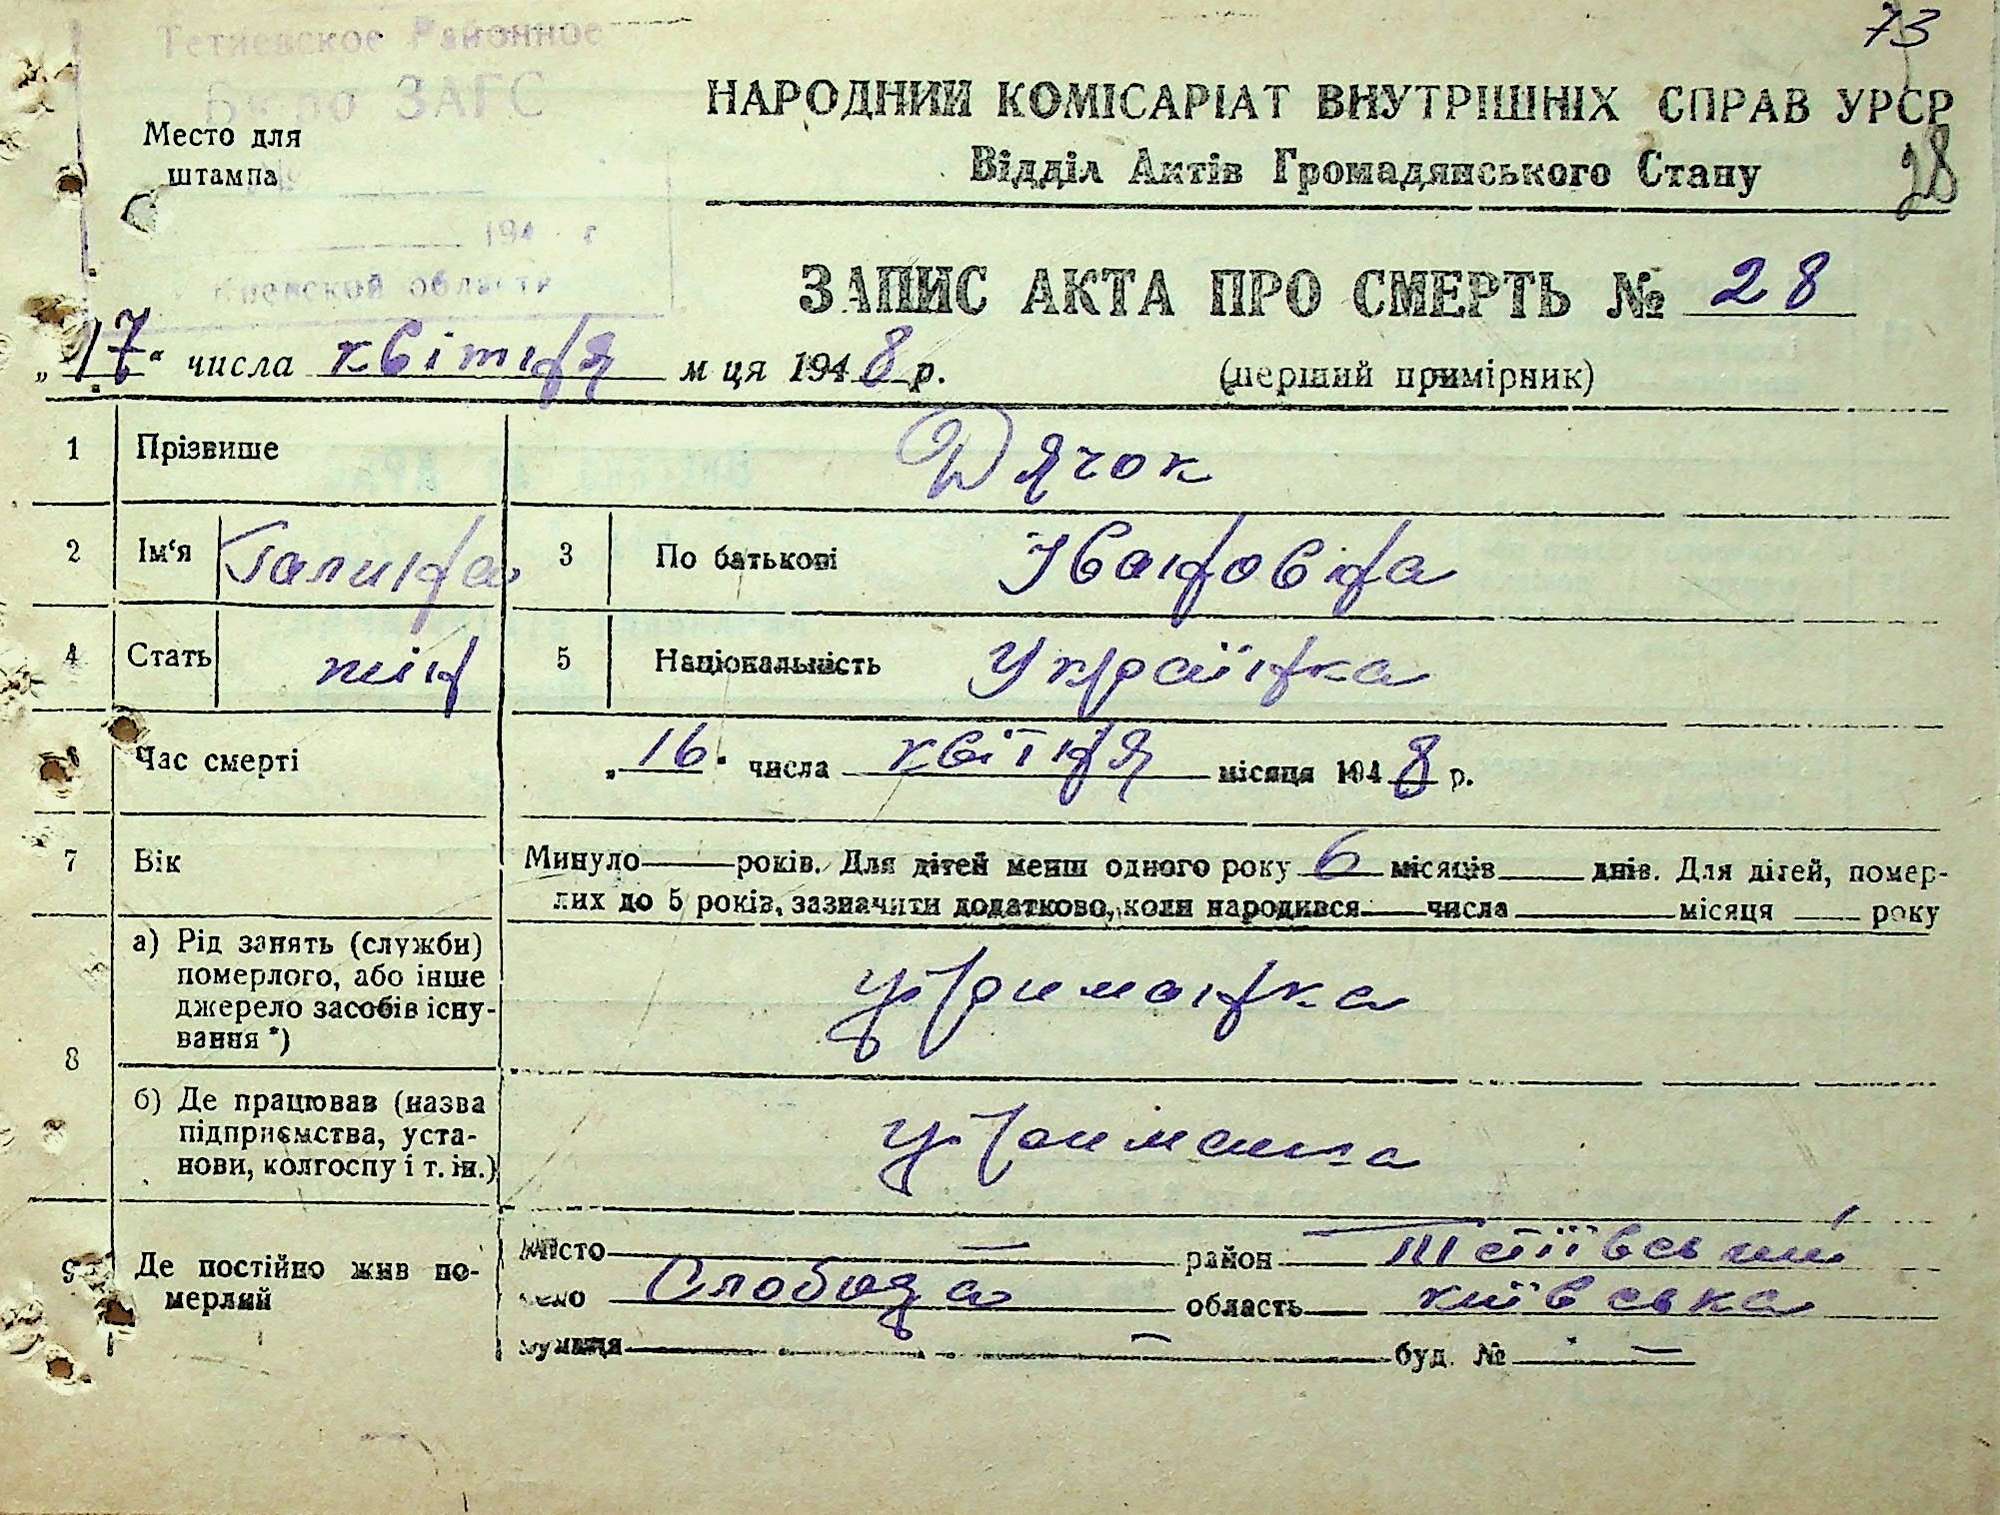 73
Тетиевское Районное
Бюро ЗАГС
НАРОДНИЙ КОМІСАРІАТ ВНУТРІШНІХ СПРАВ УРСР
Место для
штампа
Відділ Актів Громадянського Стану
28
194 г
Киевской области
ЗАПИС АКТА ПРО СМЕРТЬ № 28
„17“ числа квітня м ця 1948 р.
(перший примірник)
1 Прізвише Дячок
2 Ім‘я Галина 3 По батькові Івановна
4 Стать жін 5 Національність Українка
6 Час смерті „16“ числа квітня місяця 1948 р.
7 Вік Минуло — років. Для дітей менш одного року 6 місяців — днів. Для дітей, помер-
лих до 5 років, зазначити додатково, коли народився — числа — місяця — року
8 а) Рід занять (служби)
померлого, або інше
джерело засобів існу-
вання *)
утриманка
б) Де працював (назва
підприємства, уста-
нови, колгоспу і т. ін.)
утриманка
9 Де постійно жив по-
мерлий
місто — район Тетіївський
село Слобода область київська
вулиця — буд. № —